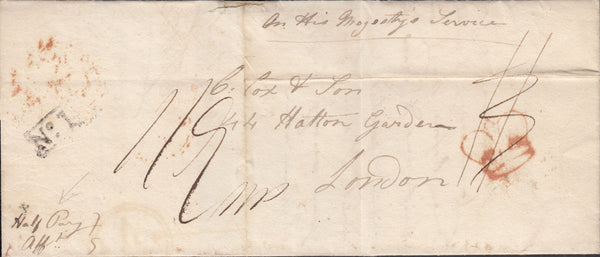 On His Majestys Service
C. Cox & Son
44 Hatton Garden
London
No. 1
Half Pay
Afft